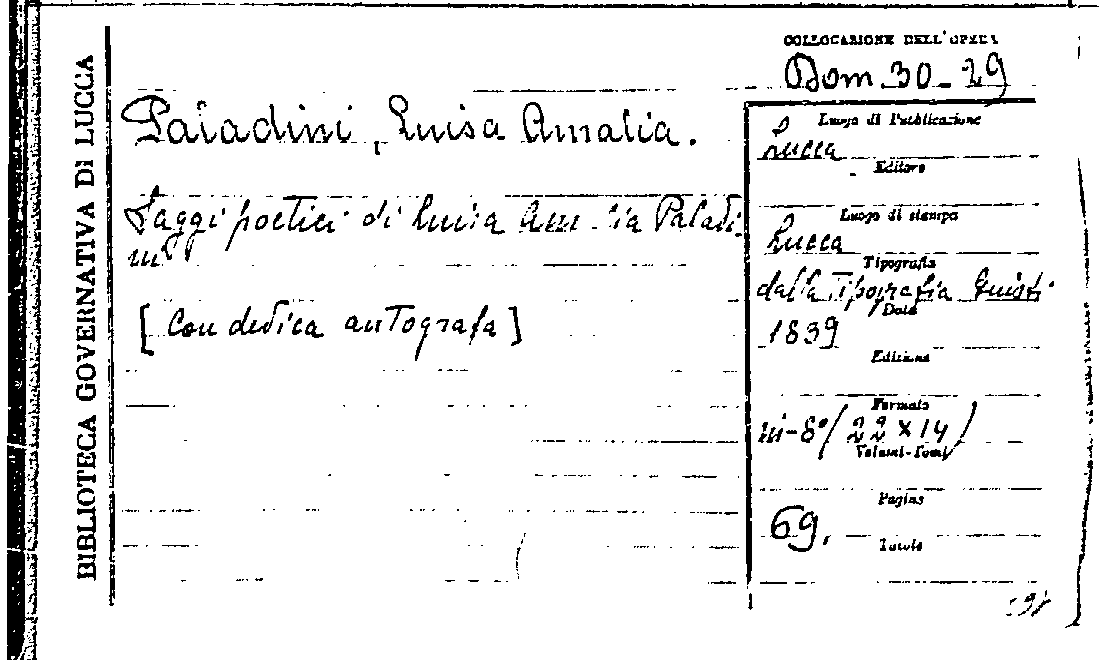 BIBLIOTECA GOVERNATIVA DI LUCCA
COLLOCAZIONE DELL'OPERA
Dom 30-29
Paladini, Luisa Amalia.
Saggi poetici di Luisa Amalia Paladi
ni
[Con dedica autografa]
Luogo di Pubblicazione
Lucca
Editore
Luogo di stampa
Lucca
Tipografia
dalla Tipografia Giusti
Data
1839
Edizione
Formato
in-8°(22x14)
Volumi-Tomi
Pagine
69.
Tavole